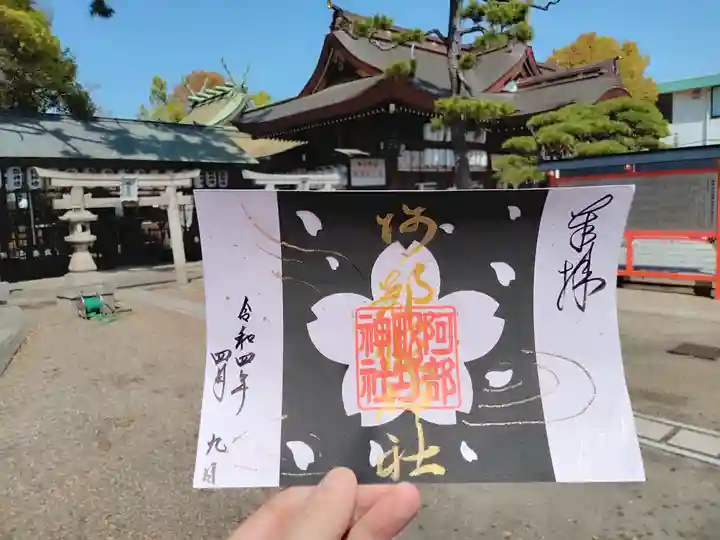 奉拝
阿部野神社
阿部野神社
令和四年
四月
九日